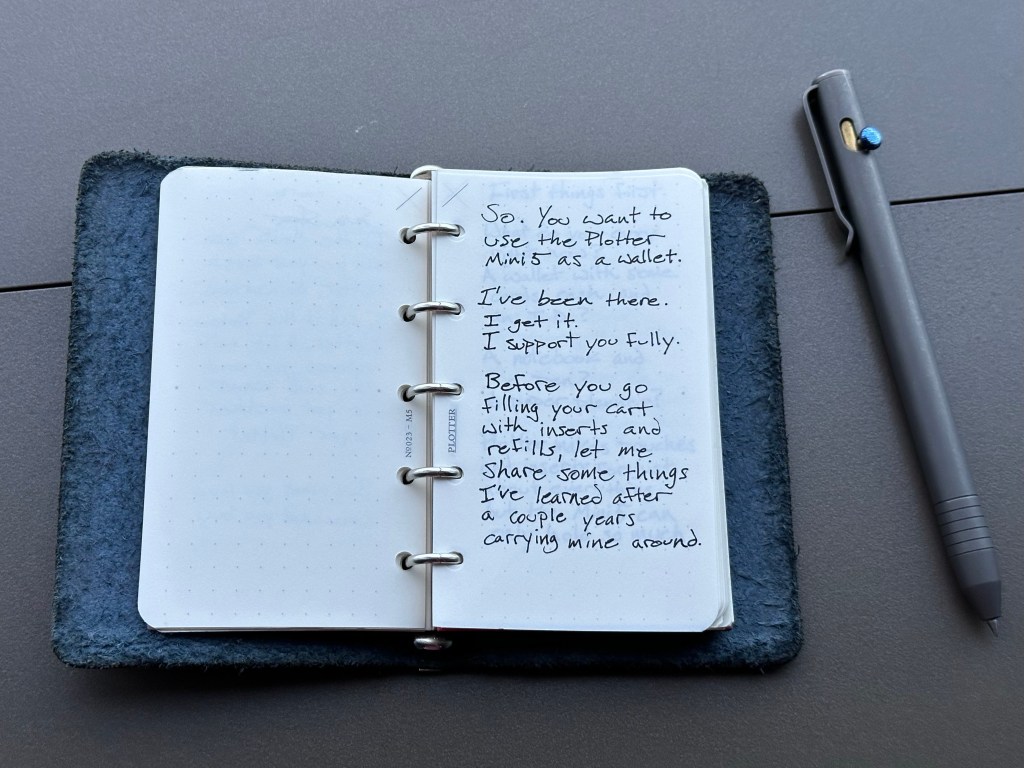 So. You want to
use the Plotter
Mini 5 as a wallet.
I've been there.
I get it.
I support you fully.
Before you go
filling your cart
with inserts and
refills, let me
share some things
I've learned after
a couple years
carrying mine around.
N9023 - M5
PLOTTER